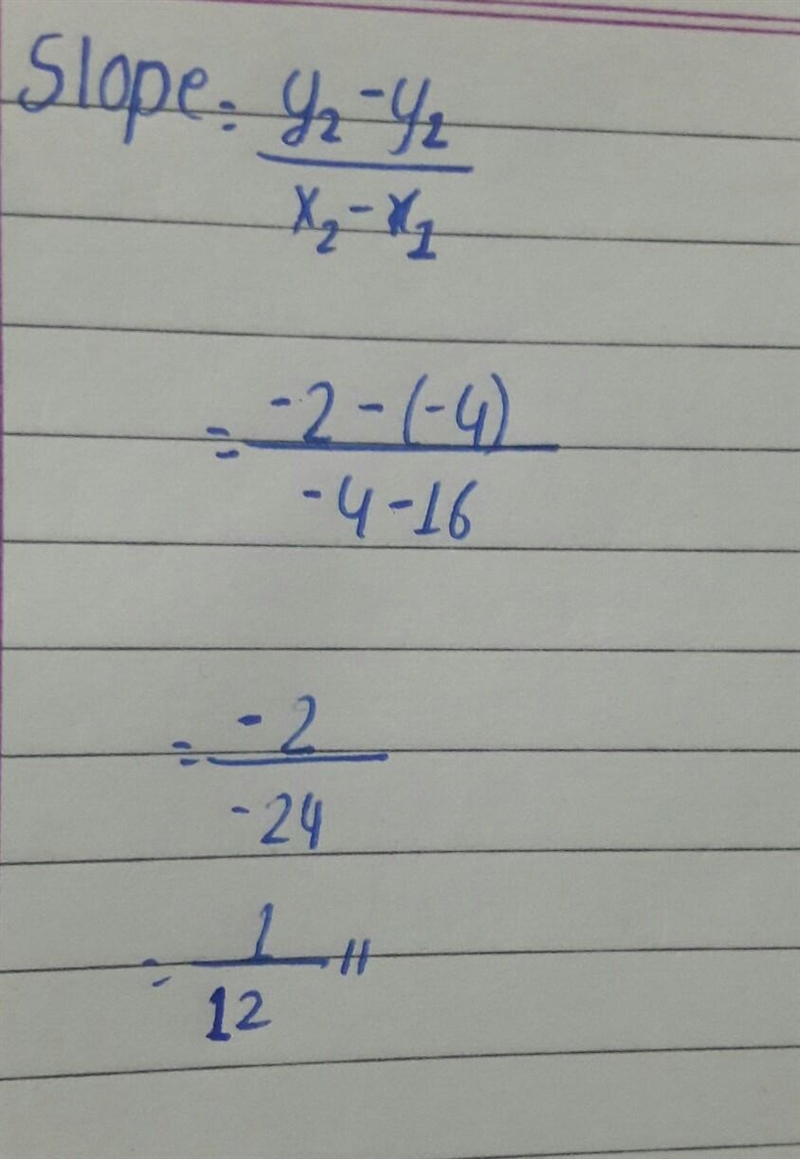 Slope = y₂ - y₂
x₂ - x₁
= -2 - (-4)
-4 - 16
= -2
-24
= 1 //
12